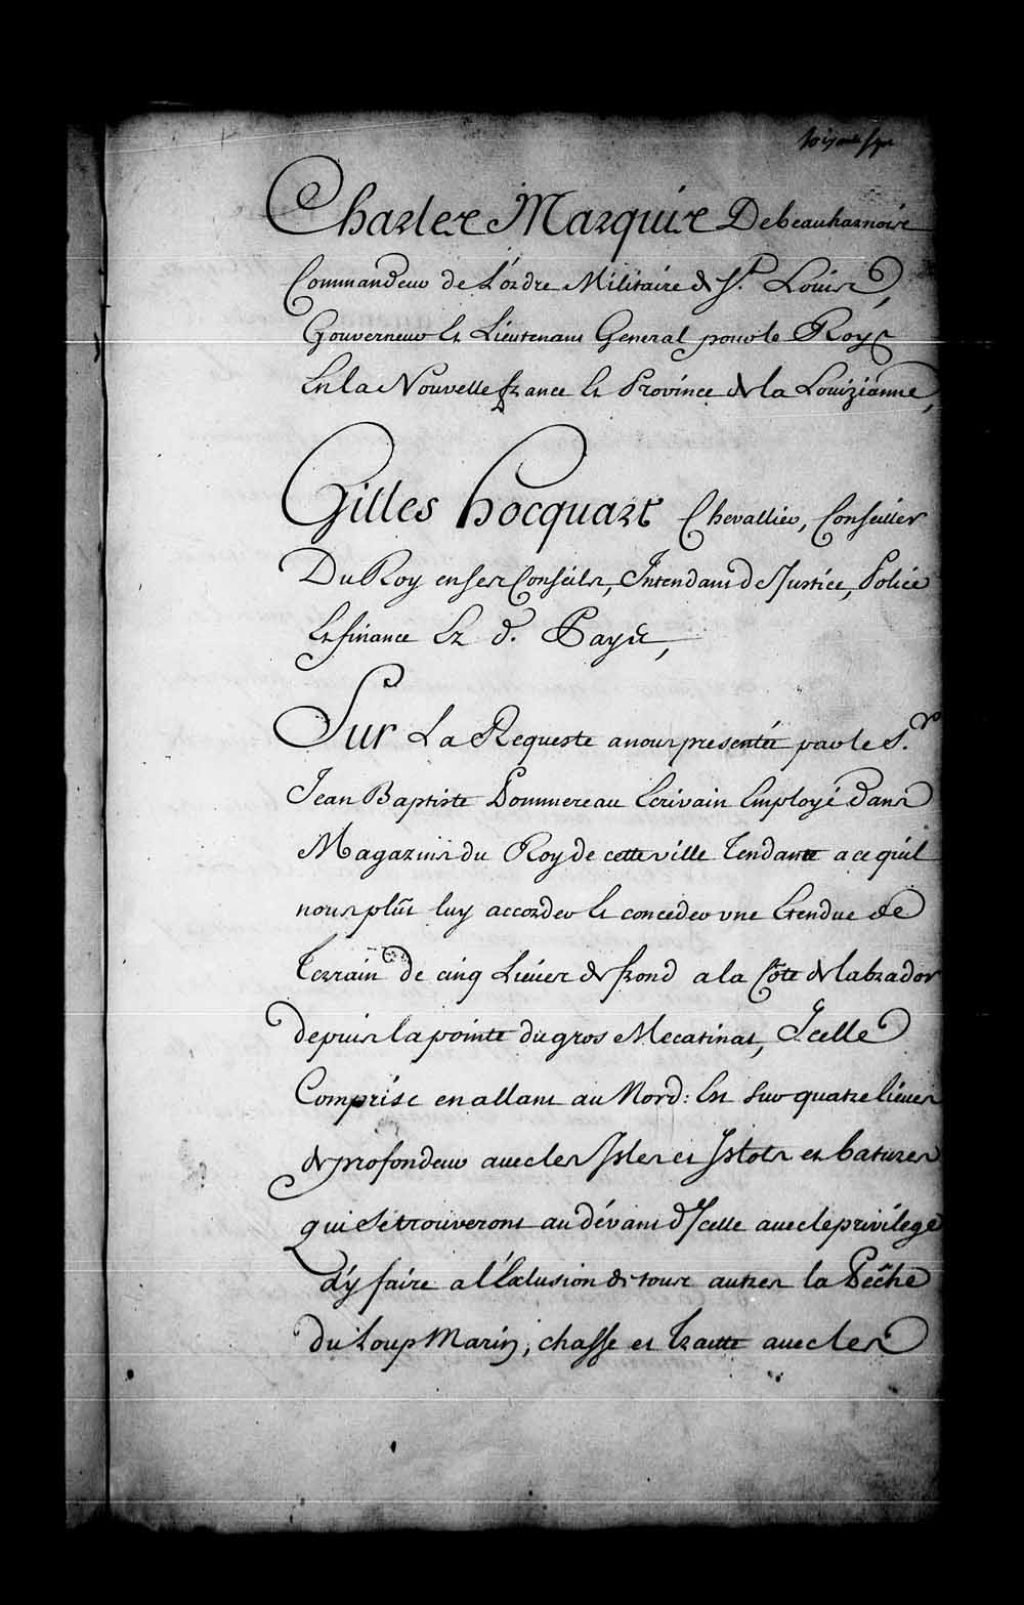 Charles Marquis Debeauharnois
Commandeur de L'ordre Militaire de St. Louis,
Gouverneur Et Lieutenant General pour le Roy
En la Nouvelle france Et Province de la Louizianne,
Gilles hocquart Chevallier, Conseiller
Du Roy en ses Conseils, Intendant de Justice, Police
Et finance Ez d. Pays,
Sur La Requeste a nous presentée par le Sr.
Jean Baptiste Pommereau Ecrivain Employé dans
Magazins du Roy de cette ville Tendante a ce quil
nous plût luy accorder Et conceder une Etendue de
Terrain de cinq Lieües de frond a la Côte de labrador
depuis la pointe du gros Mecatinat, Icelle
Comprise en allant au Nord: Et Sur quatre lieües
de profondeur avec les Isles et Islots et batures
qui Se trouveront au dévant d'Icelle avec le privilege
d'y faire a l'Exlusion de tous autres la Pêche
du Loup Marin, chasse et Traitte avec les